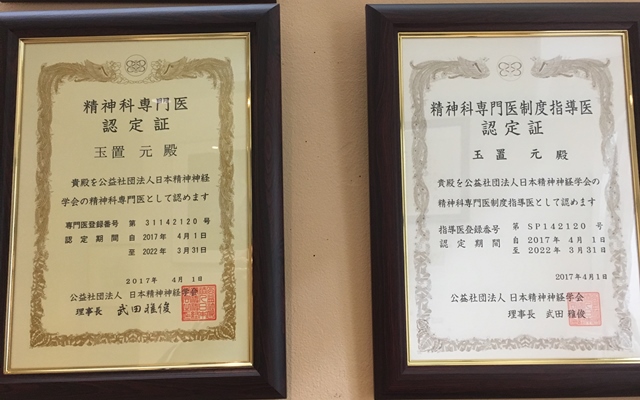 精神科専門医
認定証
玉置 元 殿
貴殿を公益社団法人日本精神神経
学会の精神科専門医として認めます
専門医登録番号 第 31142120 号
認定期間 自 2017年 4月 1日
至 2022年 3月31日
2017年 4月 1日
公益社団法人 日本精神神経学会
理事長 武田雅俊
精神科専門医制度指導医
認定証
玉置 元 殿
貴殿を公益社団法人日本精神神経学会の
精神科専門医制度指導医として認めます
指導医登録番号 第 SP142120 号
認定期間 自 2017年 4月 1日
至 2022年 3月31日
2017年4月1日
公益社団法人 日本精神神経学会
理事長 武田 雅俊